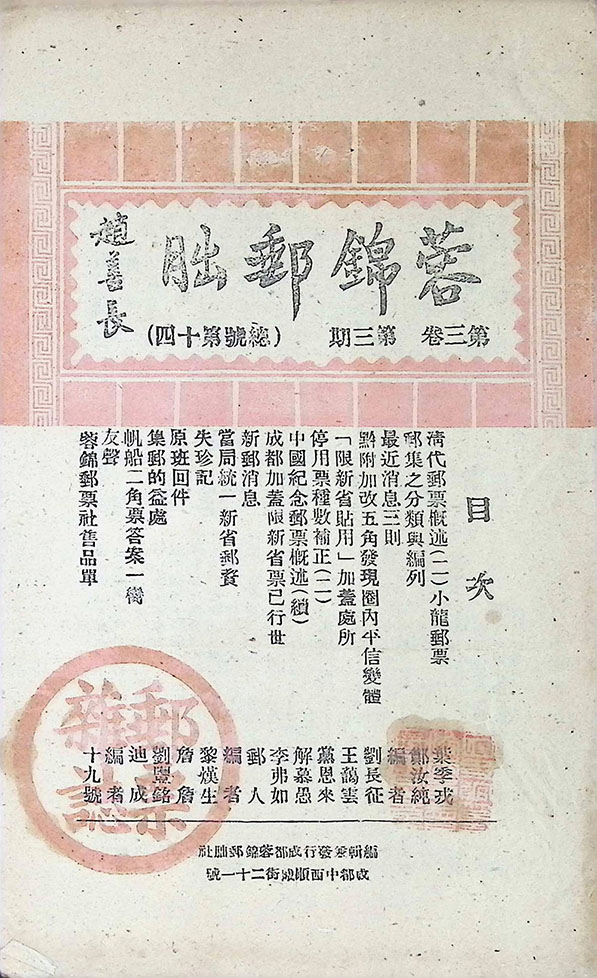 蓉錦郵朏
趙善長
第三卷 第三期 (總號第十四)
目次
清代郵票概述(二)小龍郵票 葉季戎
郵集之分類與編列 鄭汝純
最近消息三則 編者
黔附加改五角發現圈內平信變體 劉長征
「限新省貼用」加蓋處所 王藹雲
停用票種數補正(二) 黨恩來
中國紀念郵票概述(續) 解慕愚
成都加蓋限新省票已行世 李弗如
新郵消息 郵人
當局統一新省郵資 編者
失珍記 黎熯生
原班回件 詹詹
集郵的益處 劉鹽銘
帆船二角票答案一嚮 迪成
友聲 編者
蓉錦郵票社售品單 十九號
編輯兼發行成都蓉錦郵朏社
成都中西順城街二十一號
郵票雜誌